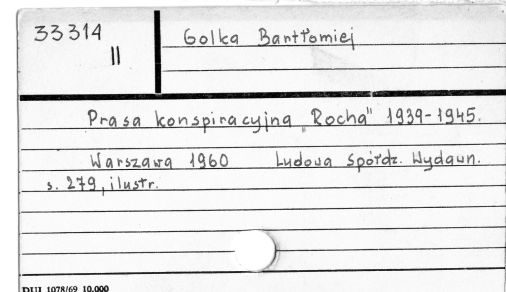 33314
II
Golka Bartłomiej
Prasa konspiracyjna "Rocha" 1939-1945.
Warszawa 1960 Ludowa Spółdz. Wydawn.
s. 279, ilustr.
DUJ 1078/69 10.000